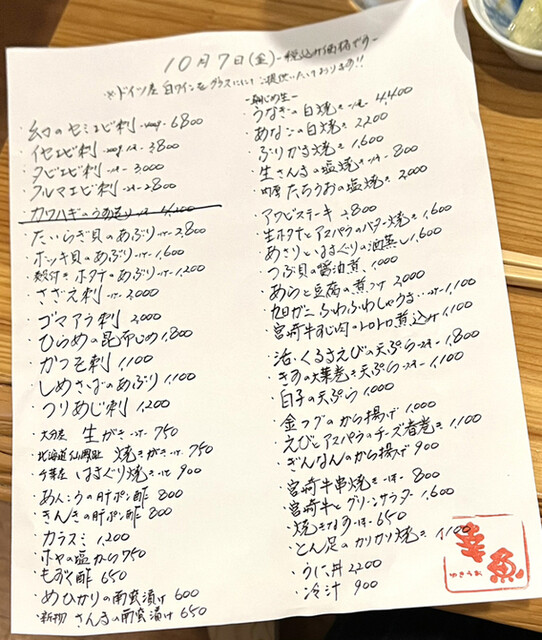 10月7日(金)-税込み価格です-
※ドイツ産白ワインをグラスにてご提供いたしております!!
・幻のセミエビ刺 6800
・イセエビ刺 3800
・タビエビ刺 3000
・クルマエビ刺 2800
・カワハギのうす造り 4,200
・たいらぎ貝のあぶり 2,800
・ホッキ貝のあぶり 1,600
・殻付きホタテのあぶり 1,200
・さざえ刺 2,000
・ゴマアラ刺 2,000
・ひらめの昆布じめ 1,800
・かつを刺 1,100
・しめさばのあぶり 1,100
・つりあじ刺 1,200
・大分産 生がき 750
・北海道仙鳳趾 焼きがき 750
・千葉産 はまぐり焼き 900
・あんこうの肝ポン酢 800
・きんきの肝ポン酢 800
・カラスミ 1,200
・ホヤの塩から 750
・もずく酢 650
・めひかりの南蛮漬け 600
・新物 さんまの南蛮漬け 650
・うなぎの白焼き 4,400
・あなごの白焼き 2,200
・ぶりかま焼き 1,600
・生さんまの塩焼き 800
・肉厚 たちうおの塩焼き 2,000
・アワビステーキ 2,800
・生ホタテとアスパラのバター焼き 1,600
・あさりとはまぐりの酒蒸し 1,600
・つぶ貝の醤油煮 1,000
・あらと豆腐の煮つけ 2,000
・旭ガニふわふわしゅうまい 1,100
・宮崎牛すじ肉のトロトロ煮込み 1,100
・活・くるまえびの天ぷら 1,800
・きすの大葉巻き天ぷら 1,100
・白子の天ぷら 1,000
・金フグのから揚げ 1,000
・えびとアスパラのチーズ春巻き 1,100
・ぎんなんのから揚げ 900
・宮崎牛串焼き 800
・宮崎牛とグリーンサラダ 1,600
・焼きなす 650
・とん足のカリカリ焼き 1,100
・うに丼 2200
・冷汁 900
幸魚
ゆきうお